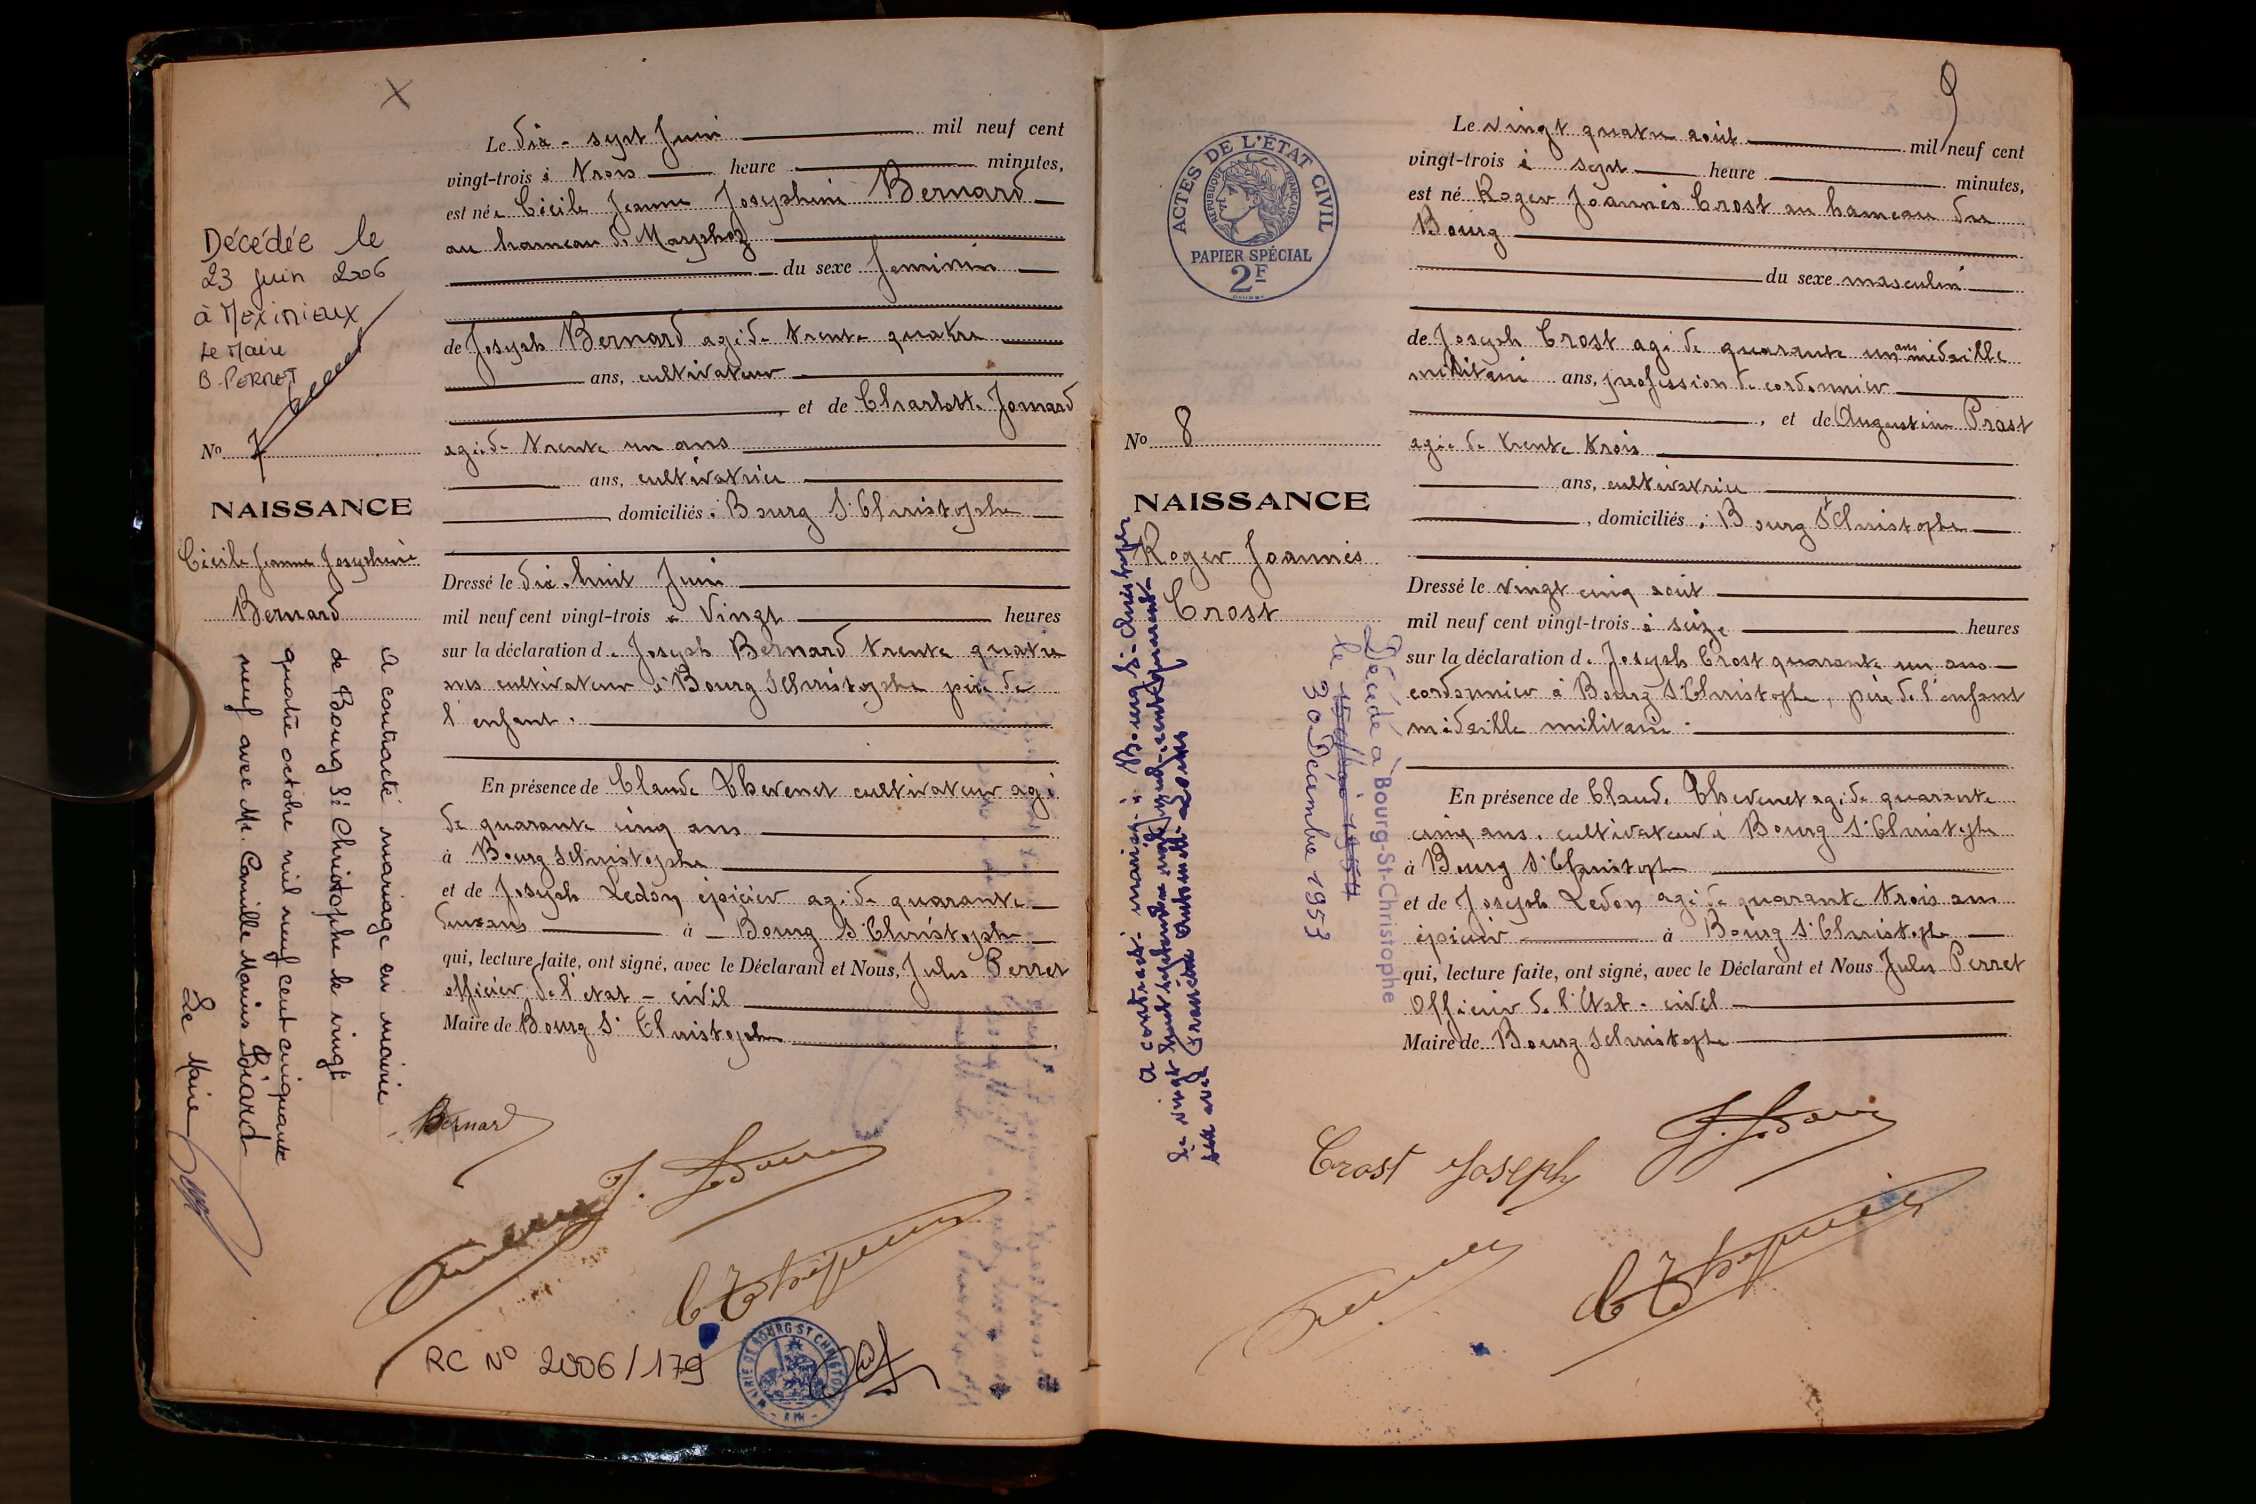 X
Le dix-sept Juin mil neuf cent
vingt-trois à trois heure minutes,
est née Cécile Jeanne Joséphine Bernard
au hameau de Marphoz
du sexe féminin
de Joseph Bernard agé de trente quatre
ans, cultivateur
et de Charlotte Jomard
agée de trente un ans
ans, cultivatrice
domiciliés à Bourg St Christophe
Dressé le dix-huit Juin
mil neuf cent vingt-trois à Vingt heures
sur la déclaration de Joseph Bernard trente quatre
ans cultivateur à Bourg St Christophe père de
l'enfant.
En présence de Claude Thevenet cultivateur agé
de quarante cinq ans
à Bourg St Christophe
et de Joseph Ledon, épicier agé de quarante
deux ans à Bourg St Christophe
qui, lecture faite, ont signé, avec le Déclarant et Nous, Jules Perret
officier de l'état-civil
Maire de Bourg St Christophe
Décédée le
23 juin 2006
à Meximieux
Le Maire
B. PERNET
No 7
NAISSANCE
Cécile Jeanne Joséphine
Bernard
A contracté mariage en mairie
de Bourg St Christophe le vingt
quatre octobre mil neuf cent cinquante
neuf avec Mr. Camille Marius
Le Maire
Bernard
RC No 2006/179
MAIRIE DE BOURG ST CHRISTOPHE
- AIN -
9
ACTES DE L'ÉTAT CIVIL
RÉPUBLIQUE FRANÇAISE
PAPIER SPÉCIAL
2F
No 8
NAISSANCE
Roger Joannès
Crost
A contracté mariage à Bourg St-Christophe
le vingt huit septembre mil neuf cent quarante
six avec Antoinette
Décédé à Bourg-St-Christophe
le 1954
30 Décembre 1953
Le vingt quatre août mil neuf cent
vingt-trois à sept heure minutes,
est né Roger Joannès Crost au hameau du
Bourg
du sexe masculin
de Joseph Crost agé de quarante un ans médaille
militaire ans, profession de cordonnier
, et de Augustine Prost
agée de trente trois
ans, cultivatrice
, domiciliés à Bourg St Christophe
Dressé le vingt cinq août
mil neuf cent vingt-trois à seize heures
sur la déclaration de Joseph Crost quarante un ans
cordonnier à Bourg St Christophe, père de l'enfant
médaille militaire.
En présence de Claude Thevenet agé de quarante
cinq ans, cultivateur à Bourg St Christophe
à Bourg St Christophe
et de Joseph Ledon agé de quarante trois ans
épicier à Bourg St Christophe
qui, lecture faite, ont signé, avec le Déclarant et Nous Jules Perret
Officier de l'Etat-civil
Maire de Bourg St Christophe
Crost Joseph